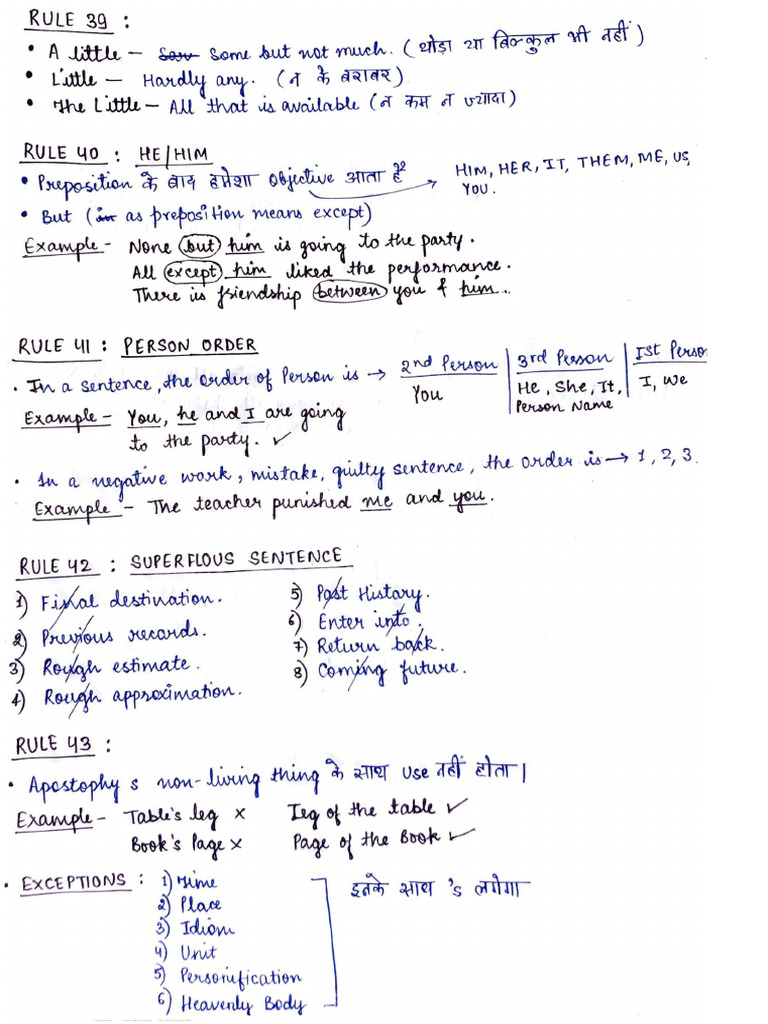 RULE 39 :
• A little – Some but not much. (थोड़ा या बिल्कुल भी नहीं)
• Little – Hardly any. (न के बराबर)
• The Little – All that is available (न कम न ज्यादा)
RULE 40 : HE/HIM
• Preposition के बाद हमेशा objective आता है → HIM, HER, IT, THEM, ME, US, YOU.
• But (as preposition means except)
Example - None but him is going to the party.
All except him liked the performance.
There is friendship between you & him..
RULE 41 : PERSON ORDER
• In a sentence, the order of Person is → 2nd Person | 3rd Person | Ist Perso
You | He, She, It, Person Name | I, We
Example - You, he and I are going
to the party. ✓
• In a negative work, mistake, guilty sentence, the order is → 1, 2, 3.
Example - The teacher punished me and you.
RULE 42 : SUPERFLOUS SENTENCE
1) Final destination.
2) Previous records.
3) Rough estimate.
4) Rough approximation.
5) Past History.
6) Enter into.
7) Return back.
8) Coming future.
RULE 43 :
• Apostophy s non-living thing के साथ use नहीं होता।
Example - Table's leg × leg of the table ✓
Book's Page × Page of the Book ✓
• EXCEPTIONS : 1) Time
2) Place
3) Idiom
4) Unit
5) Personification
6) Heavenly Body
इनके साथ 's लगेगा